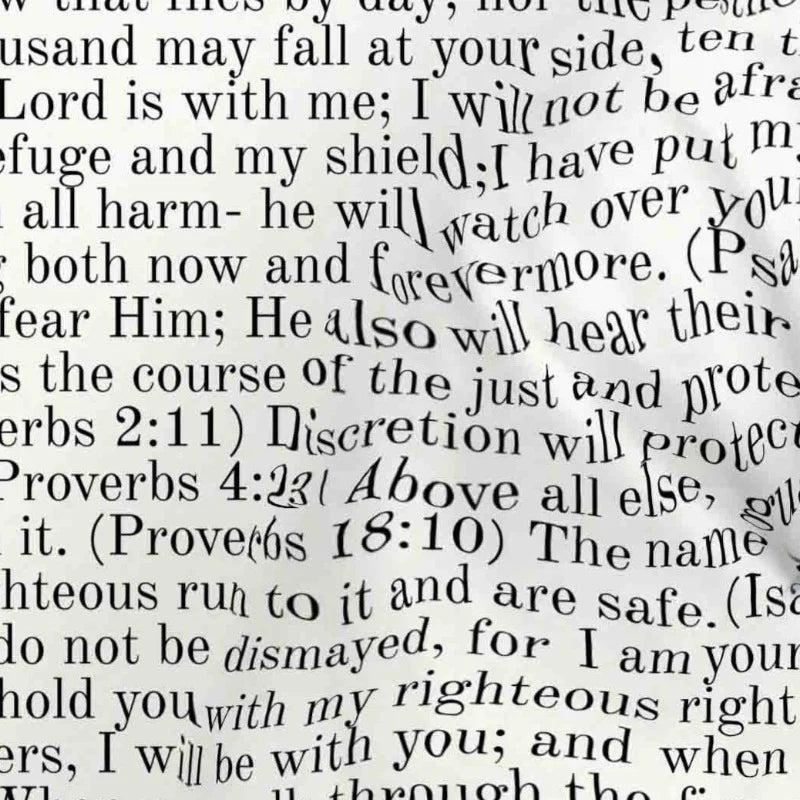 that flies by day, nor the
usand may fall at your side, ten
Lord is with me; I will not be afra
efuge and my shield; I have put my
all harm- he will watch over your
both now and forevermore. (Psa
fear Him; He also will hear their
s the course of the just and prote
erbs 2:11) Discretion will protect
Proverbs 4:23) Above all else, gu
it. (Proverbs 18:10) The name
hteous run to it and are safe. (Isa
do not be dismayed, for I am your
hold you with my righteous right
ers, I will be with you; and when
through the